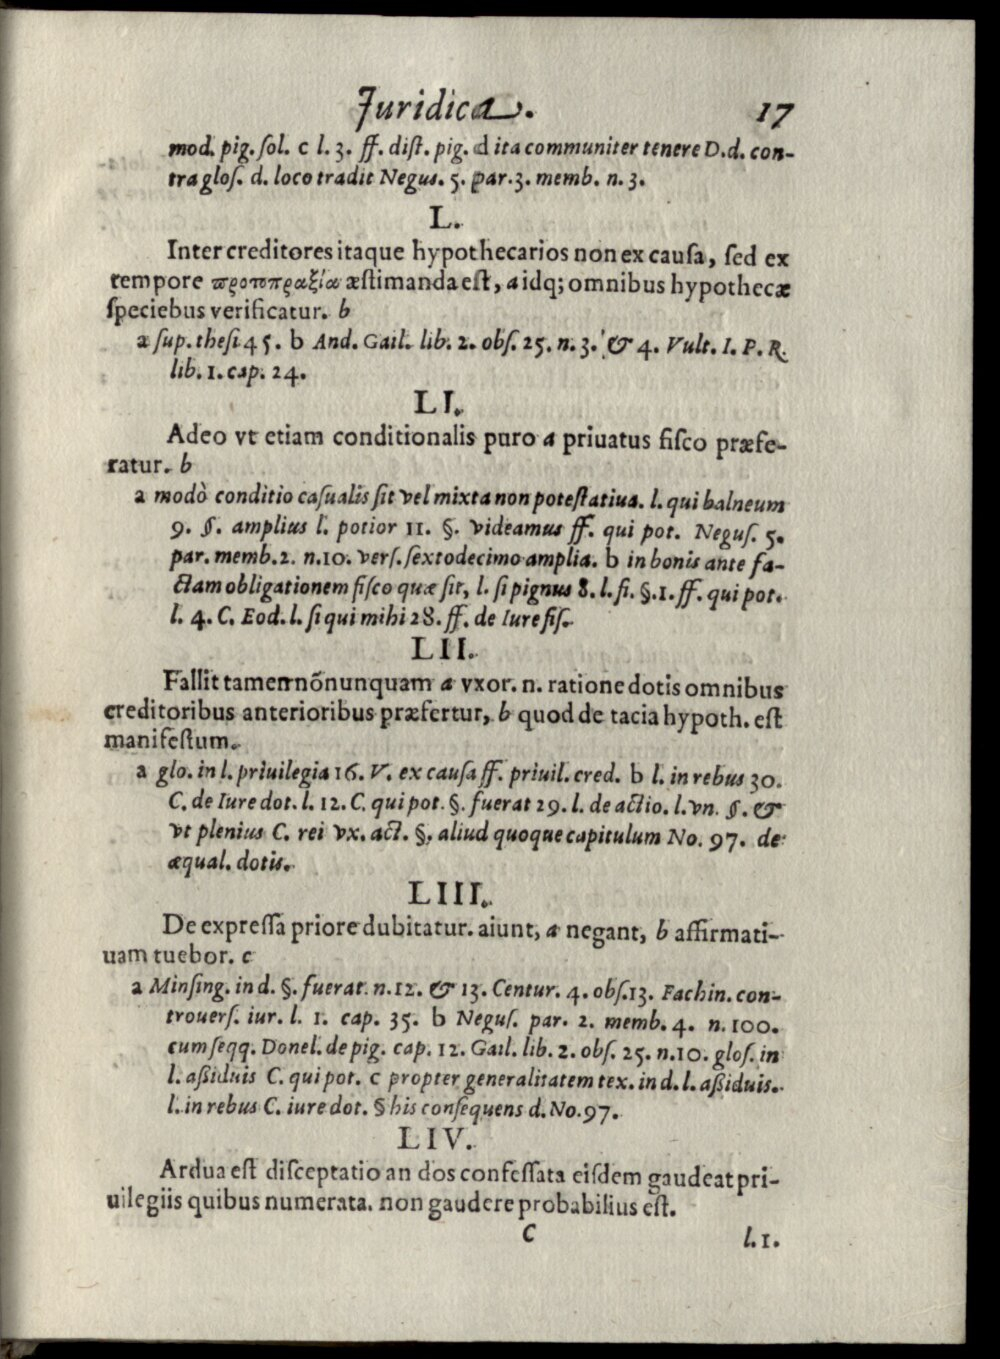 Juridica.
17
mod. pig. ſol. c l. 3. ff. diſt. pig. d ita communiter tenere D.d. con-
tra gloſ. d. loco tradit Neguſ. 5. par. 3. memb. n. 3.
L.
Inter creditores itaque hypothecarios non ex cauſa, ſed ex
tempore πρωτοπραξία æstimanda eſt, a idq; omnibus hypothecæ
ſpeciebus verificatur. b
a ſup. theſi 45. b And. Gail. lib. 2. obſ. 25. n. 3. & 4. Vult. I. P. R.
lib. 1. cap. 24.
LI.
Adeo vt etiam conditionalis puro a priuatus fiſco præfe-
ratur. b
a modò conditio caſualis ſit vel mixta non poteſtatiua. l. qui balneum
9. §. amplius l. potior 11. §. videamus ff. qui pot. Neguſ. 5.
par. memb. 2. n. 10. verſ. ſextodecimo amplia. b in bonis ante fa-
ctam obligationem fiſco quæ ſit, l. ſi pignus 8. l. fi. §. 1. ff. qui pot.
l. 4. C. Eod. l. ſi qui mihi 28. ff. de Iure fiſ.
LII.
Fallit tamen nõnunquam a vxor. n. ratione dotis omnibus
creditoribus anterioribus præfertur, b quod de tacia hypoth. eſt
manifeſtum.
a glo. in l. priuilegia 16. V. ex cauſa ff. priuil. cred. b l. in rebus 30.
C. de Iure dot. l. 12. C. qui pot. §. fuerat 29. l. de actio. l. vn. §. &
vt plenius C. rei vx. act. §. aliud quoque capitulum No. 97. de
æqual. dotis.
LIII.
De expreſſa priore dubitatur. aiunt, a negant, b affirmati-
uam tuebor. c
a Minſing. in d. §. fuerat. n. 12. & 13. Centur. 4. obſ. 13. Fachin. con-
trouerſ. iur. l. 1. cap. 35. b Neguſ. par. 2. memb. 4. n. 100.
cum ſeqq. Donel. de pig. cap. 12. Gail. lib. 2. obſ. 25. n. 10. gloſ. in
l. aßiduis C. qui pot. c propter generalitatem tex. in d. l. aßiduis.
l. in rebus C. iure dot. § his conſequens d. No. 97.
LIV.
Ardua eſt diſceptatio an dos confeſſata eiſdem gaudeat pri-
uilegiis quibus numerata. non gaudere probabilius eſt.
C
l. 1.